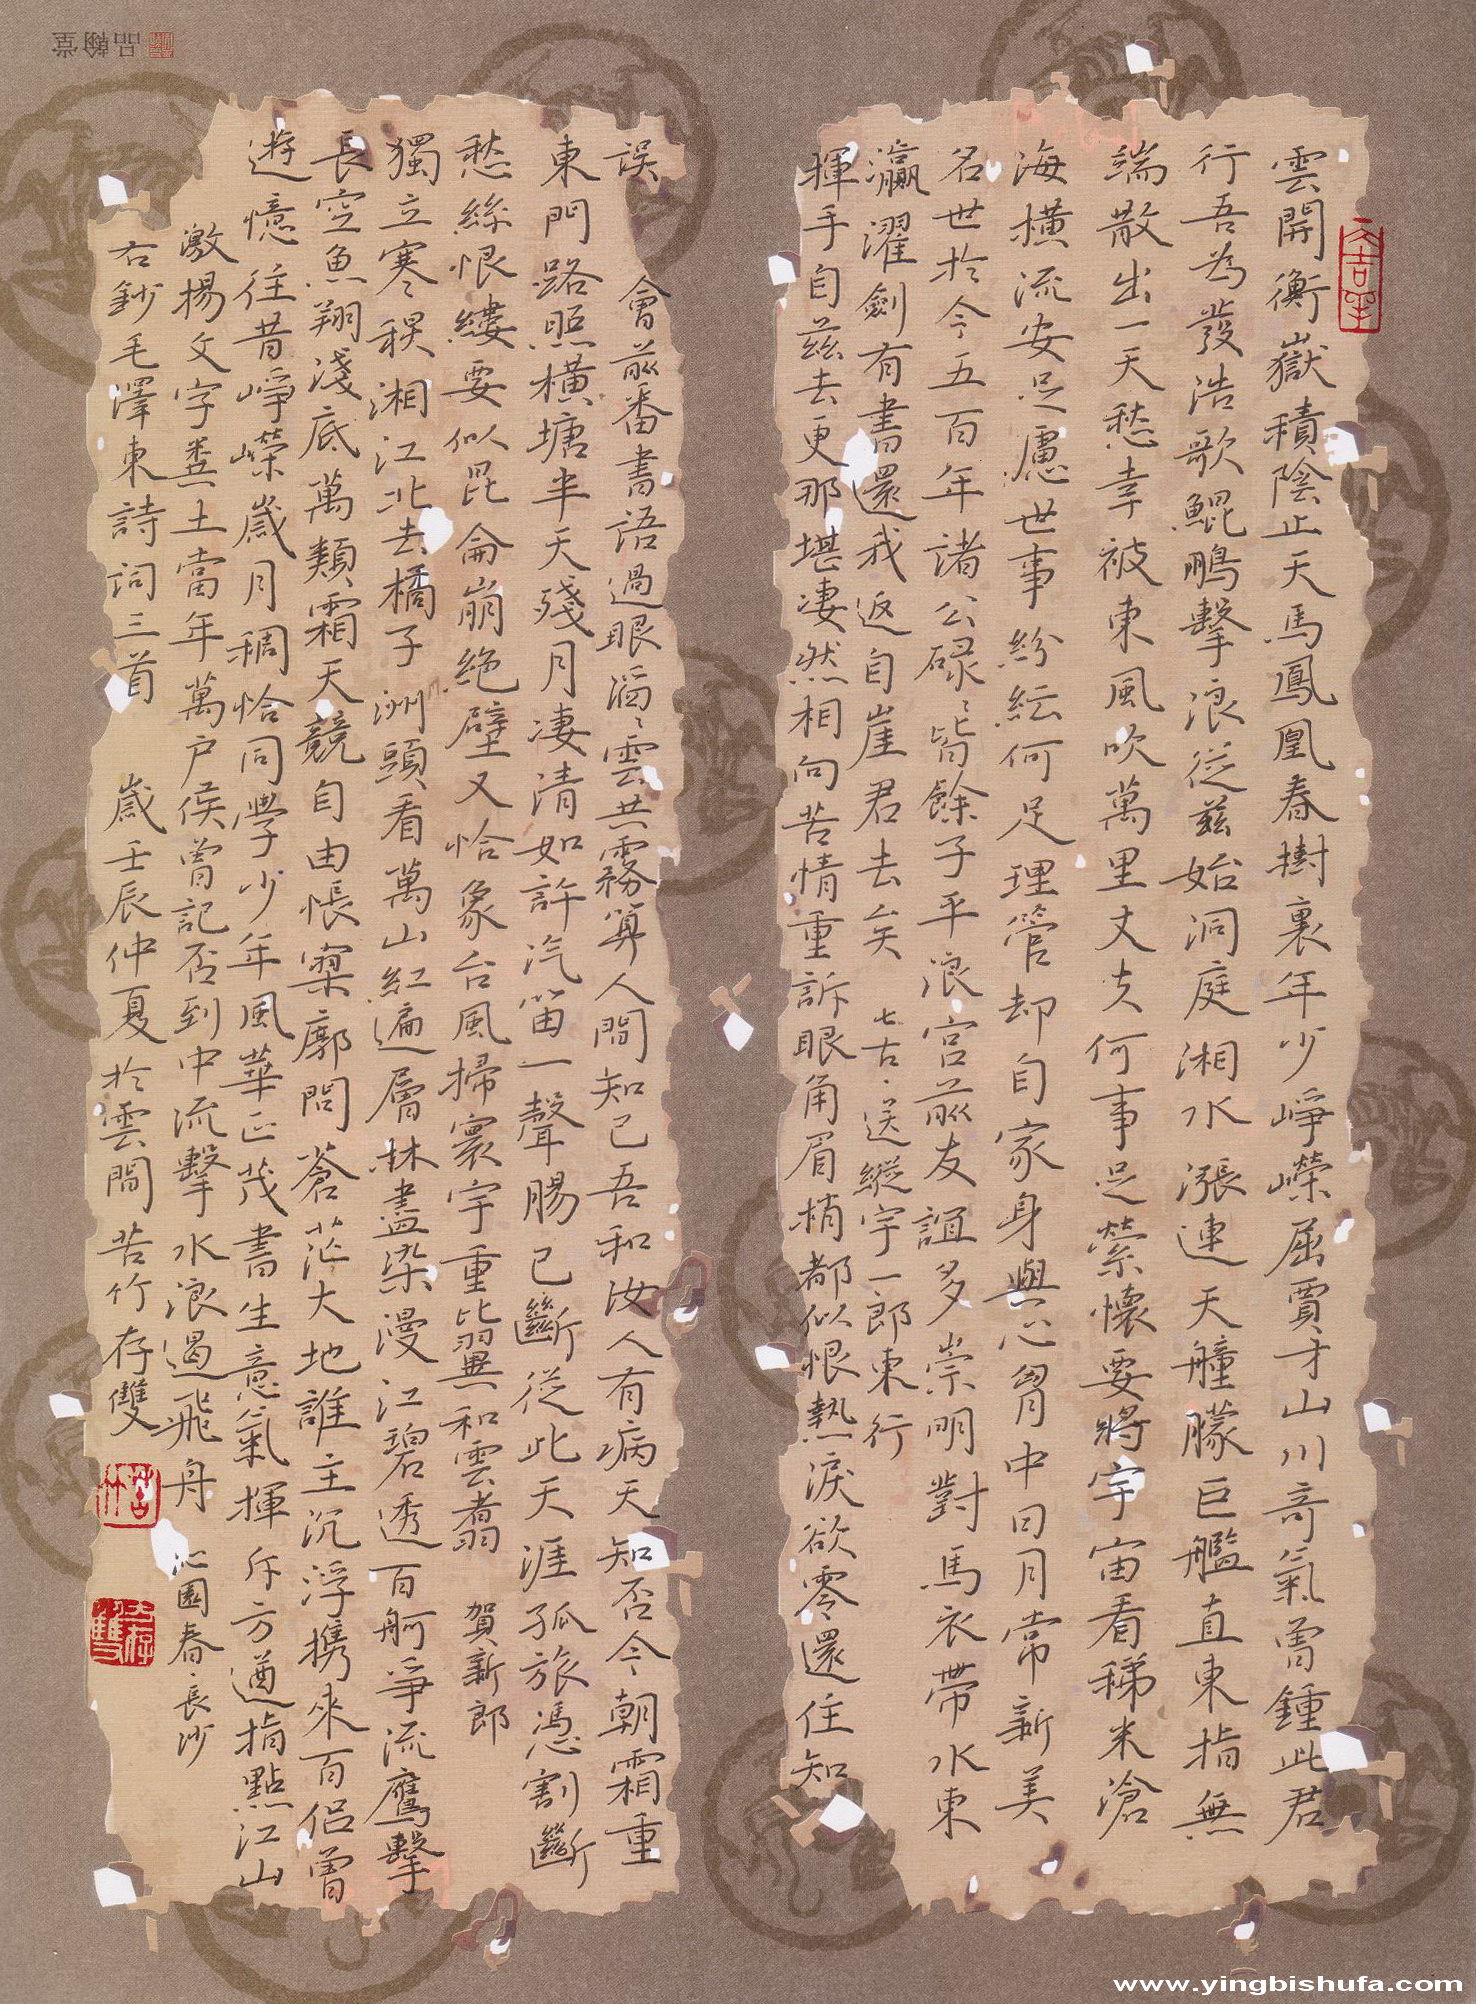 雲開衡嶽積陰止天馬鳳凰春樹裏年少崢嶸屈賈才山川奇氣曾鍾此君
行吾為發浩歌鯤鵬擊浪從茲始洞庭湘水漲連天艟艨巨艦直東指無
端散出一天愁幸被東風吹萬里丈夫何事足縈懷要將宇宙看稊米滄
海橫流安足慮世事紛紜何足理管却自家身與心胷中日月常新美
名世於今五百年諸公碌〻皆餘子平浪宮前友誼多崇明對馬衣帶水東
瀛濯劍有書還我返自崖君去矣 七古·送縱宇一郎東行
揮手自茲去更那堪淒然相向苦情重訴眼角眉梢都似恨熱淚欲零還住知
誤會前番書語過眼滔〻雲共霧算人間知己吾和汝人有病天知否今朝霜重
東門路照橫塘半天殘月淒清如許汽笛一聲腸已斷從此天涯孤旅憑割斷
愁絲恨縷要似昆侖崩絕壁又恰象台風掃寰宇重比翼和雲翥 賀新郎
獨立寒秋湘江北去橘子洲頭看萬山紅遍層林盡染漫江碧透百舸爭流鷹擊
長空魚翔淺底萬類霜天競自由悵寥廓問蒼茫大地誰主沉浮携來百侶曾
遊憶往昔崢嶸歲月稠恰同學少年風華正茂書生意氣揮斥方遒指點江山
激揚文字糞土當年萬戶侯曾記否到中流擊水浪遏飛舟 沁園春·長沙
右鈔毛澤東詩詞三首 歲壬辰仲夏於雲間苦竹存雙
苦竹
存雙
品翰堂
www.yingbishufa.com